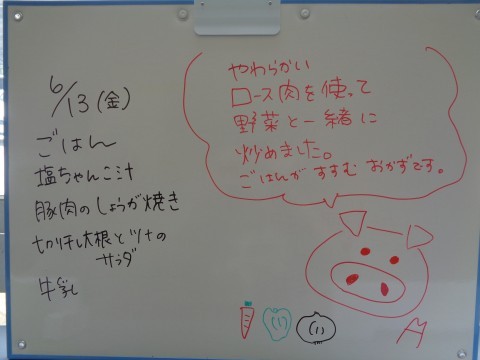 6/13(金)
ごはん
塩ちゃんこ汁
豚肉のしょうが焼き
切り干し大根とツナの
サラダ
牛乳
やわらかい
ロース肉を使って
野菜と一緒に
炒めました。
ごはんが すすむ おかずです。